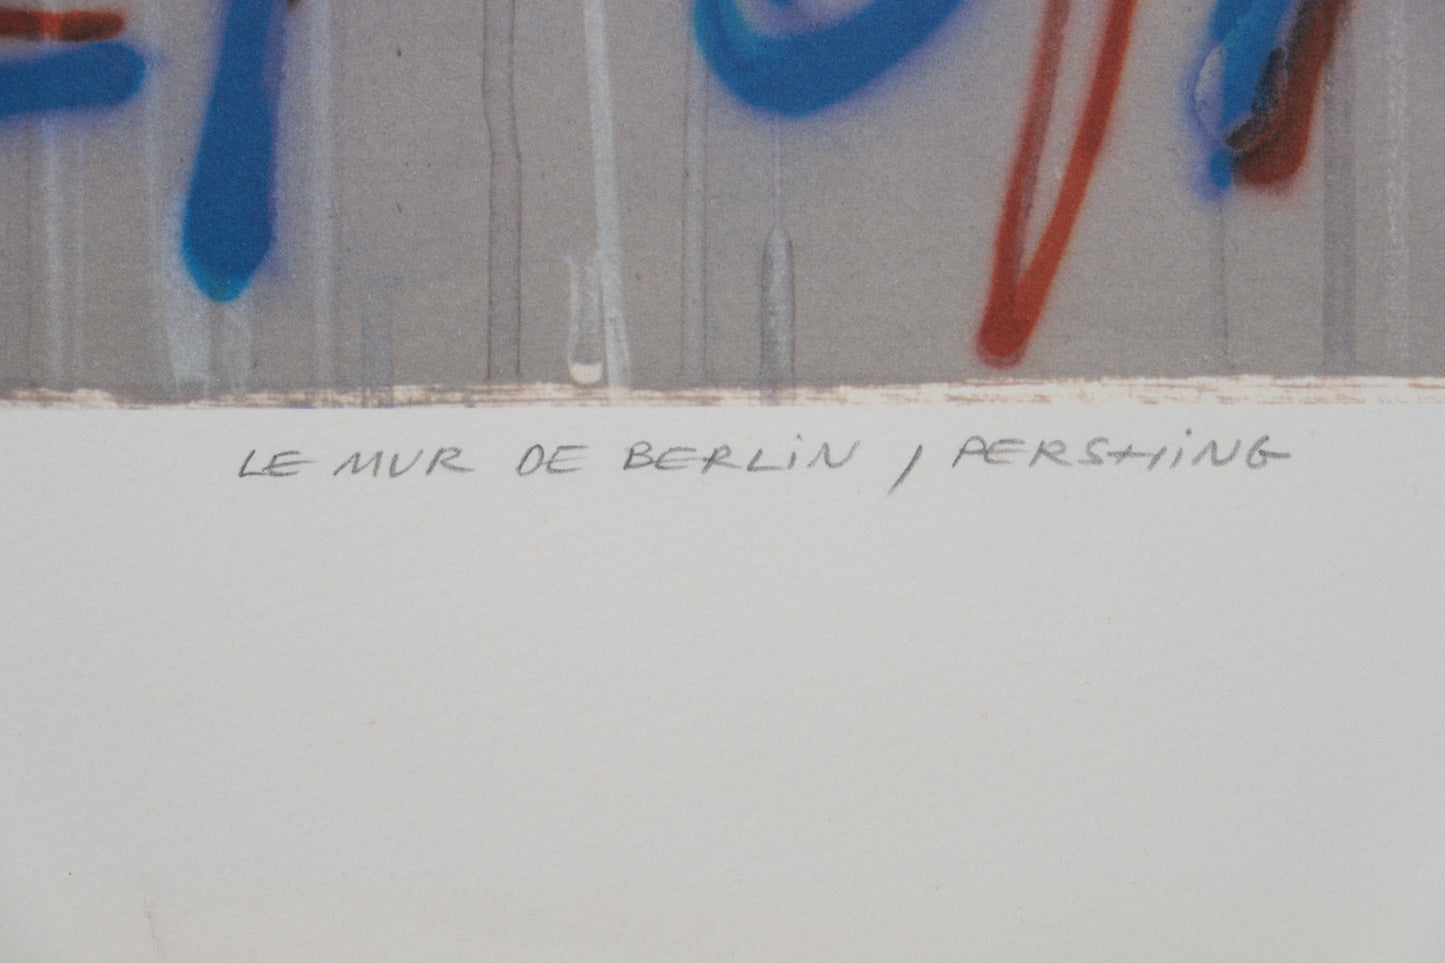 LE MUR DE BERLiN / PERSHiNG